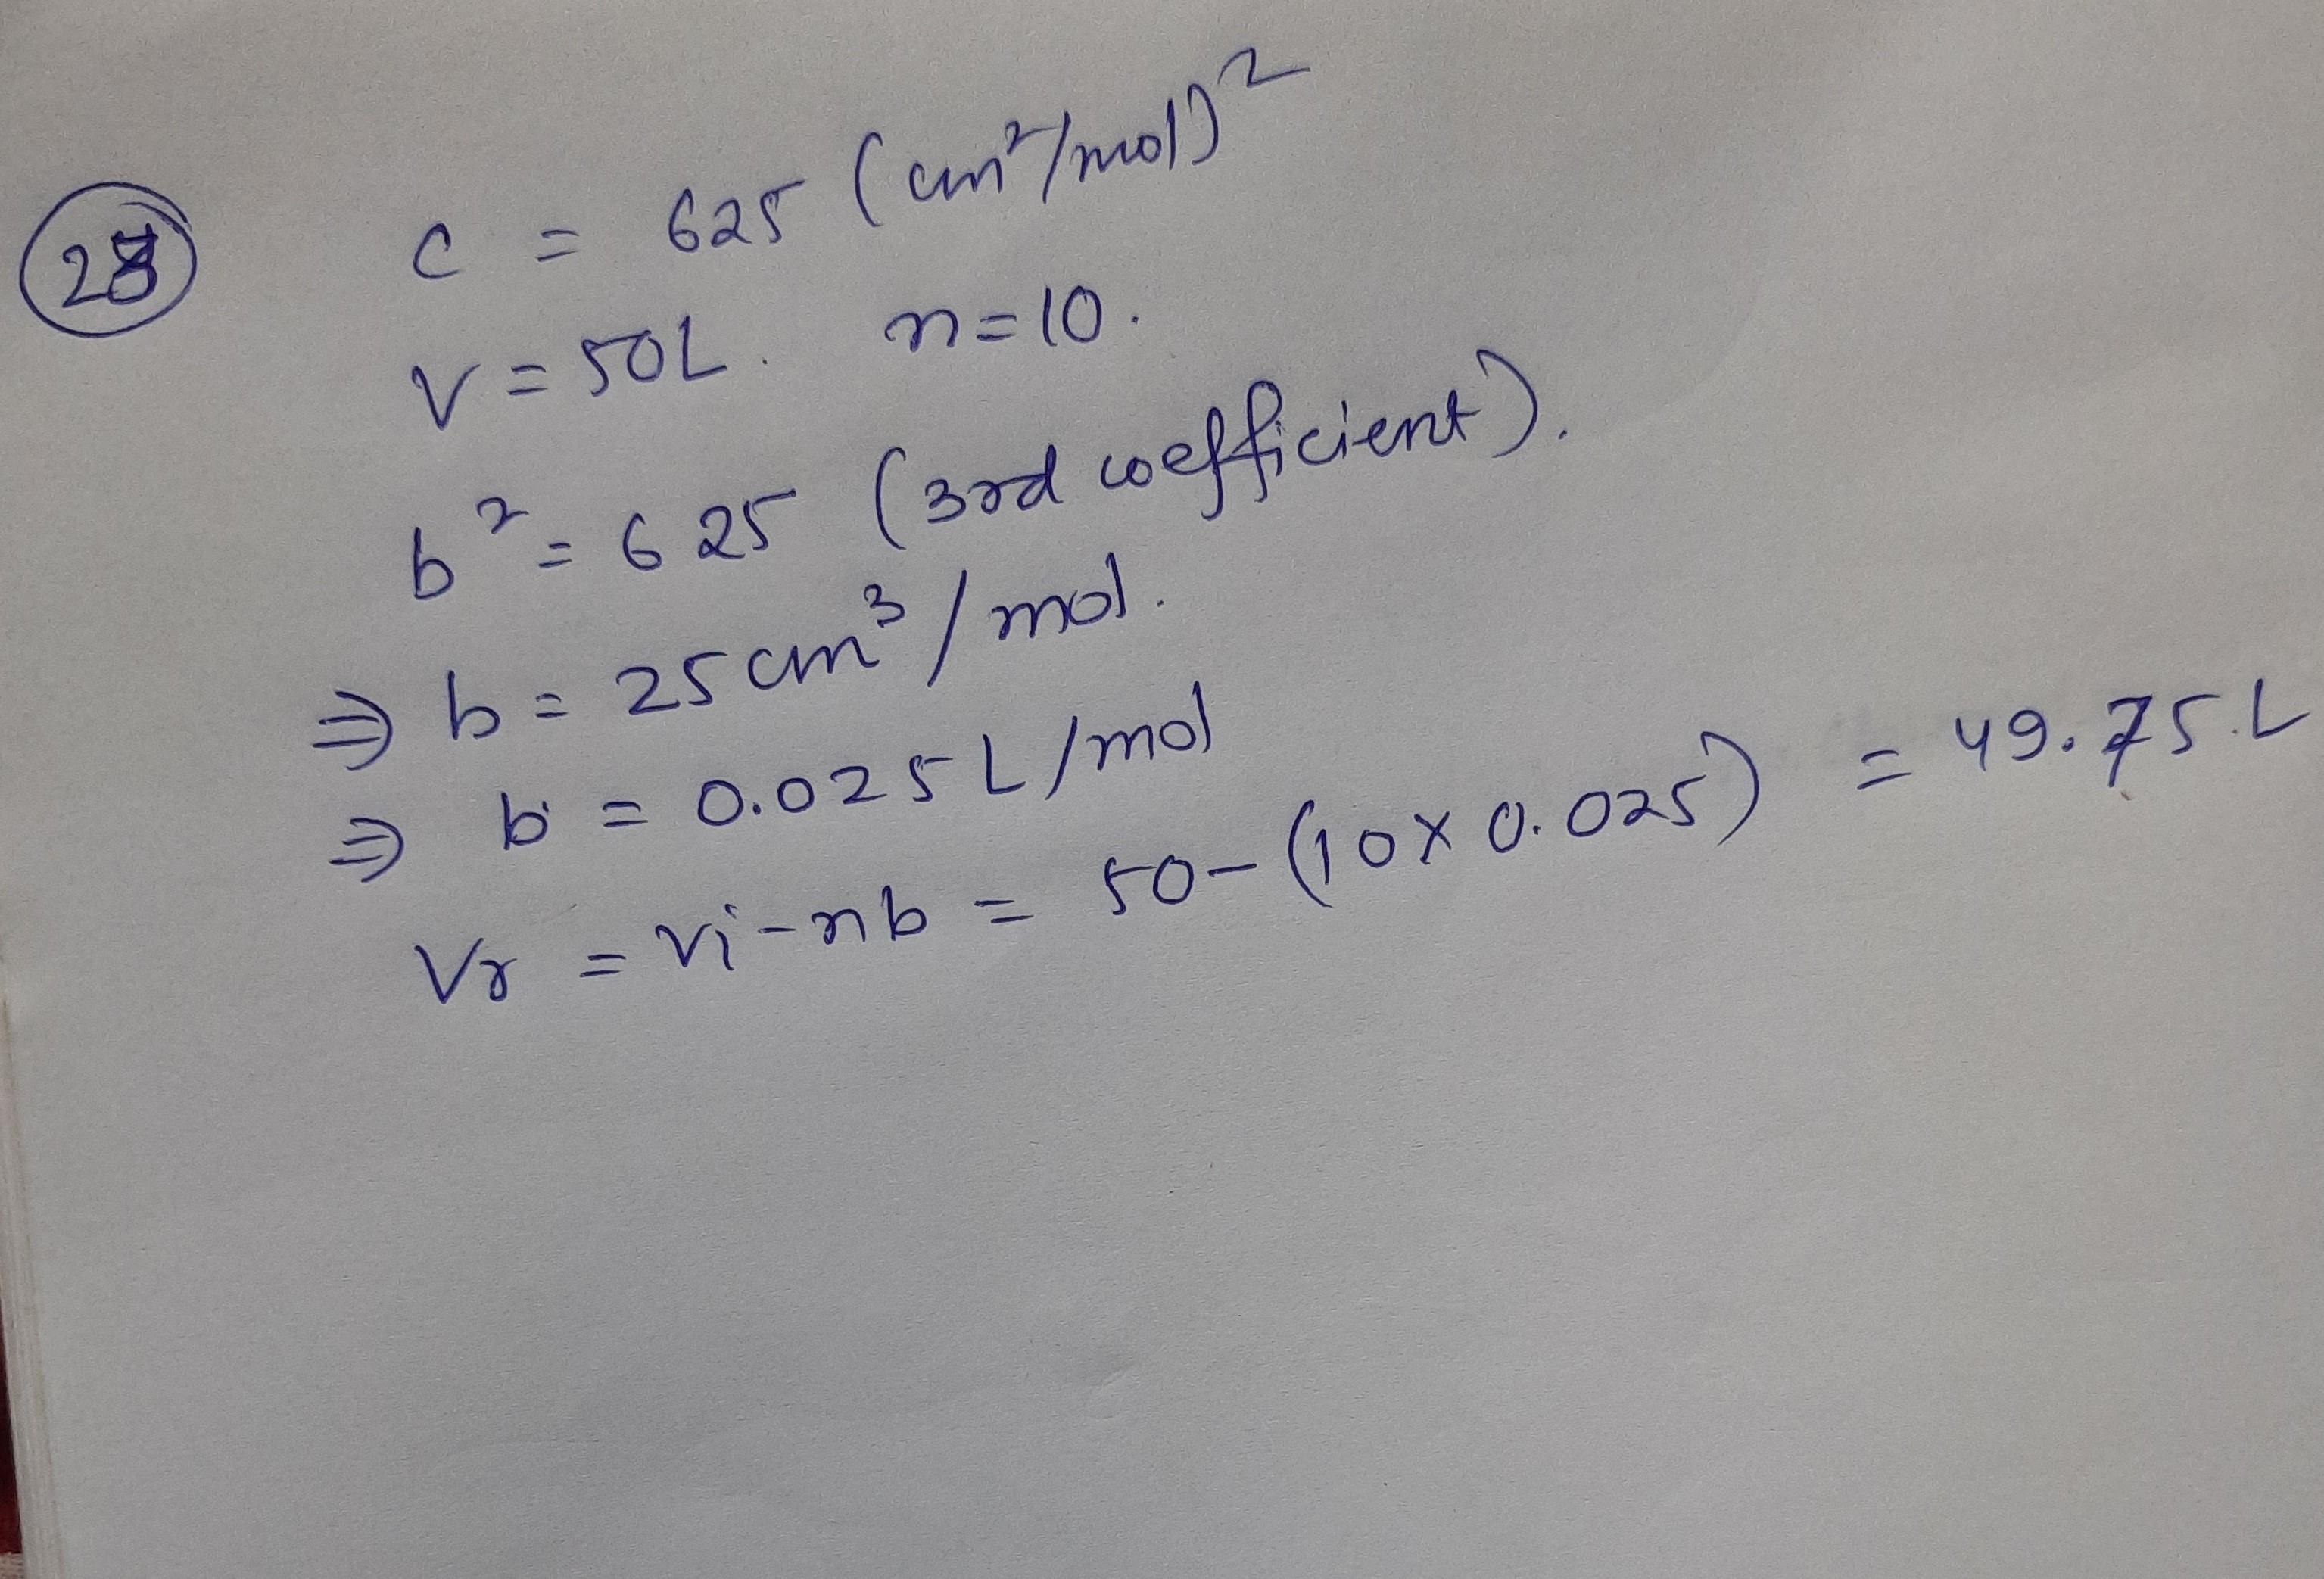 28 c = 625 (cm²/mol)²
V = 50L. n=10.
b² = 625 (3rd coefficient).
⇒ b = 25 cm³/mol.
⇒ b = 0.025 L/mol
Vr = Vi - nb = 50 - (10 x 0.025) = 49.75.L